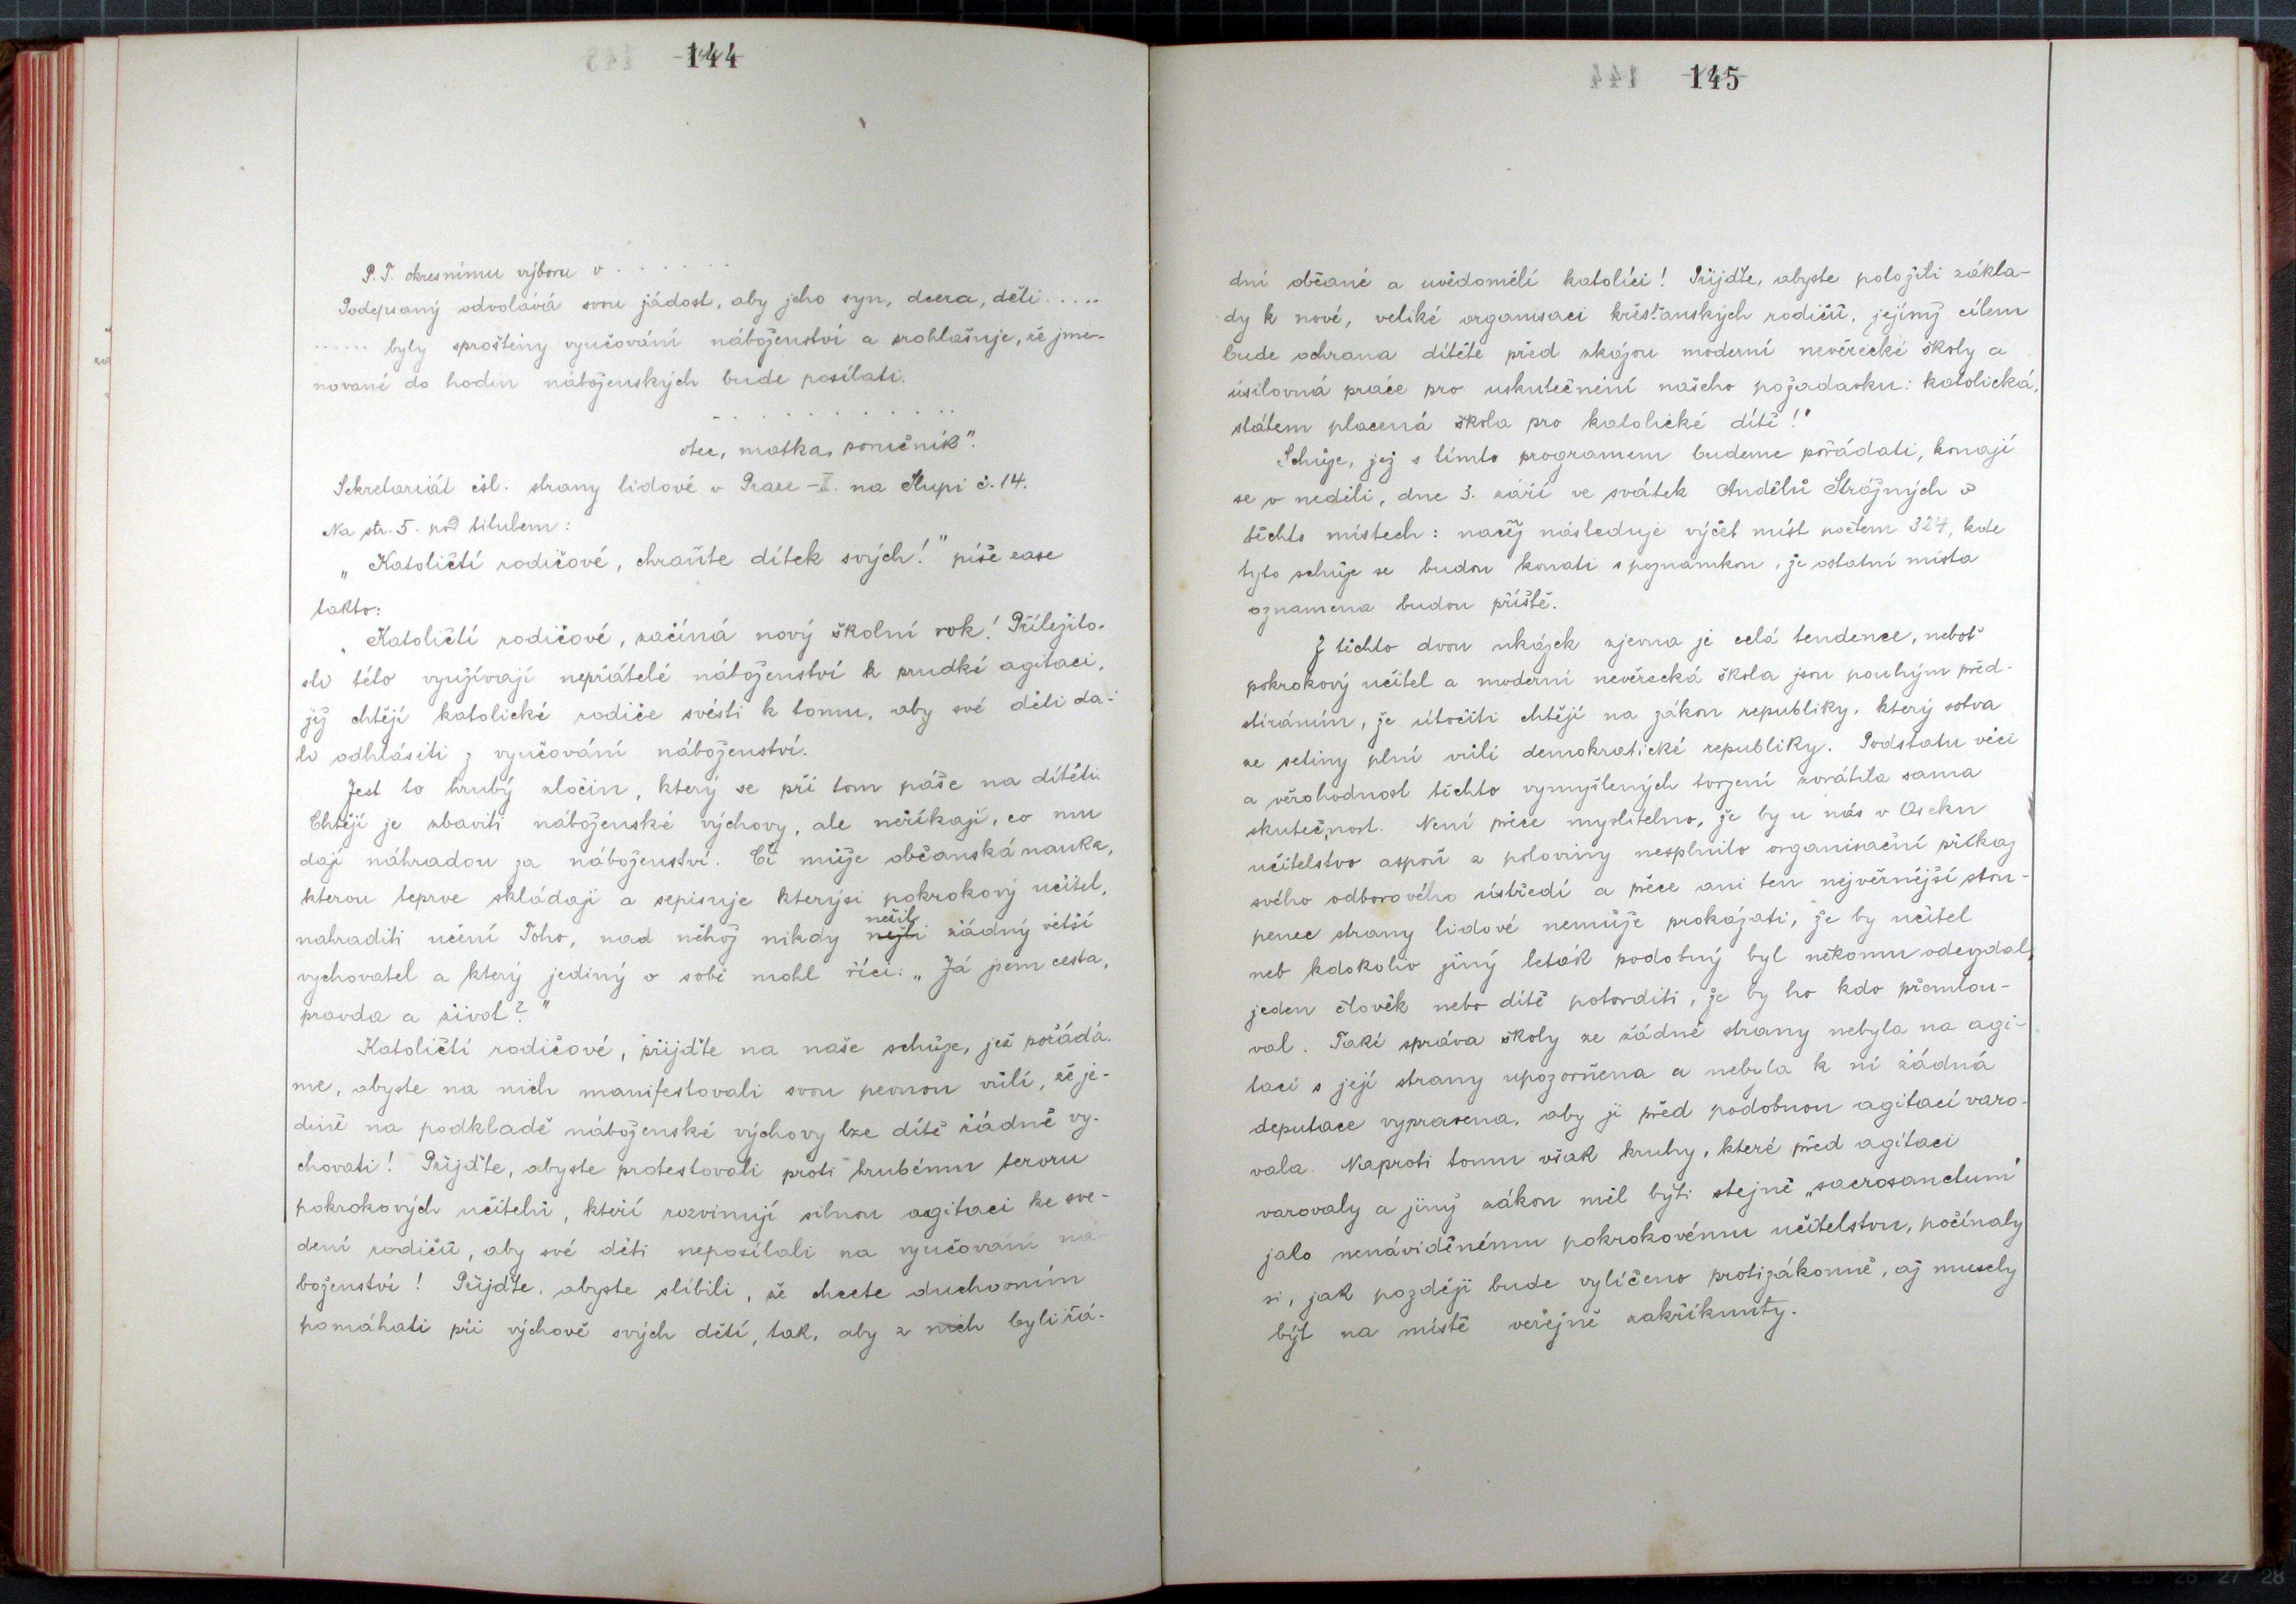 144
P. T. okresnímu výboru v . . . . . .
Podepsaný odvolává svou žádost, aby jeho syn, dcera, děti . . . . .
. . . . . . byly sproštěny vyučování náboženství a prohlašuje, že jme-
nované do hodin náboženských bude posílati.
. . . . . . . . . . . .
otec, matka, poručník".
Sekretariát čsl. strany lidové v Praze - II. na Slupi č. 14.
Na str. 5. pod titulem:
„Katoličtí rodičové, chraňte dítek svých!" píše zase
takto:
„Katoličtí rodičové, začíná nový školní rok! Příležito-
sti této využívají nepřátelé náboženství k prudké agitaci,
jíž chtějí katolické rodiče svésti k tomu, aby své děti da-
li odhlásiti z vyučování náboženství.
Jest to hrubý zločin, který se při tom páše na dítěti.
Chtějí je zbaviti náboženské výchovy, ale neříkají, co mu
dají náhradou za náboženství. Či může občanská nauka,
kterou teprve skládají a sepisuje kterýsi pokrokový učitel,
nahraditi učení Toho, nad něhož nikdy nežil žádný větší
vychovatel a který jediný o sobě mohl říci: „Já jsem cesta,
pravda a život?"
Katoličtí rodičové, přijďte na naše schůze, jež pořádá-
me, abyste na nich manifestovali svou pevnou vůli, že je-
dině na podkladě náboženské výchovy lze dítě řádně vy-
chovati! Přijďte, abyste protestovali proti hrubému teroru
pokrokových učitelů, kteří rozvinují silnou agitaci ke sve-
dení rodičů, aby své děti neposílali na vyučování ná-
boženství! Přijďte, abyste slíbili, že chcete duchovním
pomáhati při výchově svých dětí, tak, aby z nich byli řá-
145
dní občané a uvědomělí katolíci! Přijďte, abyste položili zákla-
dy k nové, veliké organisaci křesťanských rodičů, jejímž cílem
bude ochrana dítěte před zkázou moderní nevěrecké školy a
úsilovná práce pro uskutečnění našeho požadavku: katolická,
státem placená škola pro katolické dítě!"
Schůze, jež s tímto programem budeme pořádati, konají
se v neděli, dne 3. září ve svátek Andělů Strážných v
těchto místech: načež následuje výčet míst počtem 324, kde
tyto schůze se budou konati s poznámkou, že ostatní místa
oznamena budou příště.
Z těchto dvou ukázek zjevna je celá tendence, neboť
pokrokový učitel a moderní nevěrecká škola jsou pouhým před-
stíráním, že útočiti chtějí na zákon republiky, který sotva
ze setiny plní vůli demokratické republiky. Podstatu věci
a věrohodnost těchto vymyšlených tvrzení zvrátila sama
skutečnost. Není přece myslitelno, že by u nás v Oseku
učitelstvo aspoň z poloviny nesplnilo organisační příkaz
svého odborového ústředí a přece ani ten nejvěrnější stou-
penec strany lidové nemůže prokázati, že by učitel
neb kdokoliv jiný leták podobný byl někomu odevzdal,
jeden člověk nebo dítě potvrditi, že by ho kdo přemlou-
val. Také správa školy ze žádné strany nebyla na agi-
taci s její strany upozorněna a nebyla k ní žádná
deputace vypravena, aby ji před podobnou agitací varo-
vala. Naproti tomu však kruhy, které před agitací
varovaly a jiný zákon měl býti stejně „sacrosanctum"
jako nenáviděnému pokrokovému učitelstvu, počínaly
si, jak později bude vylíčeno protizákonně, až musely
být na místě veřejně zakřiknuty.